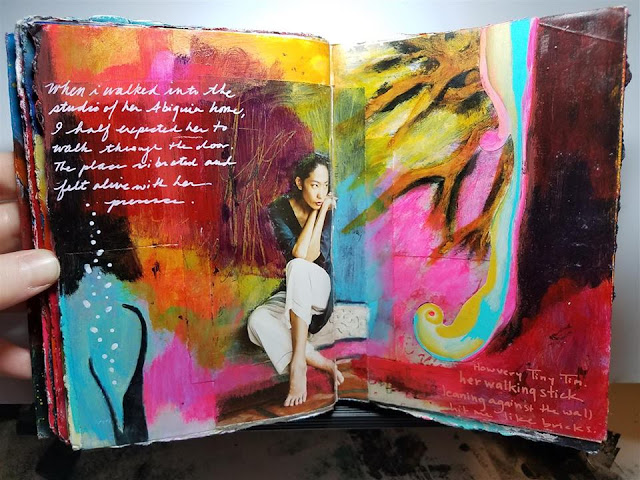 When i walked into the
studio of her Abiquia home,
I half expected her to
walk through the door.
The place vibrated and
felt alive with her
presence.
How very Tiny Tim.
her walking stick
leaning against the wall
like bricks.